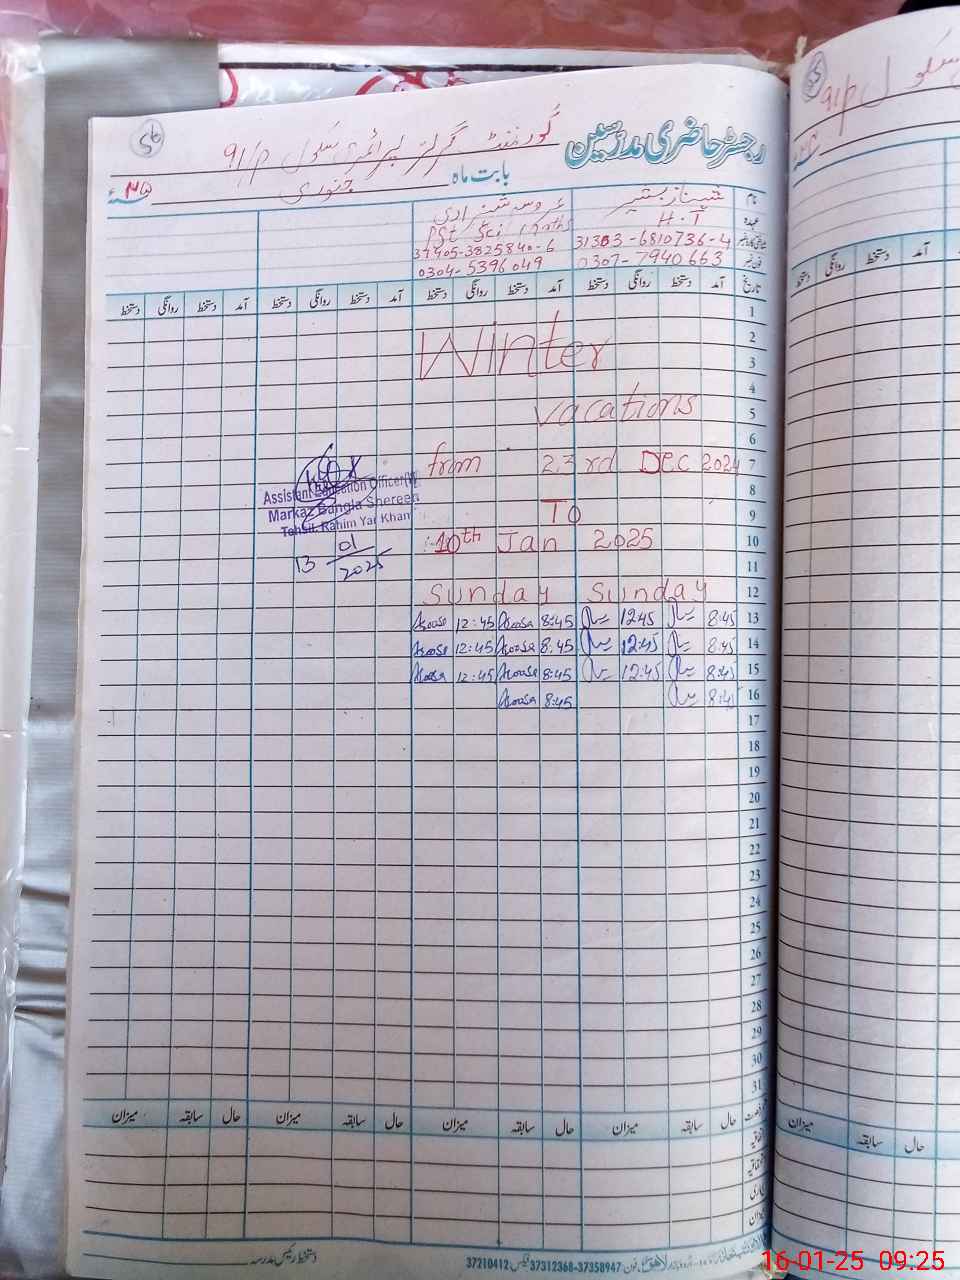 رجسٹر حاضری مدرسین
گورنمنٹ گرلز پرائمری سکول 91/P
بابت ماہ جنوری
نام شہناز بشیر
عہدہ H.T
PST Sci Maths
31303-6810736-4
31405-3825840-6
فون نمبر 0307-7940663
0304-5396049
تاریخ آمد دستخط روانگی دستخط آمد دستخط روانگی دستخط آمد دستخط روانگی دستخط آمد دستخط روانگی دستخط
1
2
Winter
3
4
vacations
5
6
from 23rd Dec 2024
7
8
To
9
10th Jan 2025
10
11
Sunday Sunday
12
12:45 8:45 12:45 8:45
13
12:45 8:45 12:45 8:45
14
12:45 8:45 12:45 8:45
15
8:45 8:45
16
17
18
19
20
21
22
23
24
25
26
27
28
29
30
31
Assistant Education Officer(W)
Markaz Bangla Shereen
Tehsil. Rahim Yar Khan
13
01
2025
حال سابقہ میزان حال سابقہ میزان حال سابقہ میزان حال سابقہ میزان
اتفاقیہ
بیماری
میزان
دستخط رئیس مدرسہ
فون 37312368-37358947 فیکس 37210412
سکول 91/P
آمد دستخط روانگی دستخط
حال سابقہ میزان
16-01-25 09:25